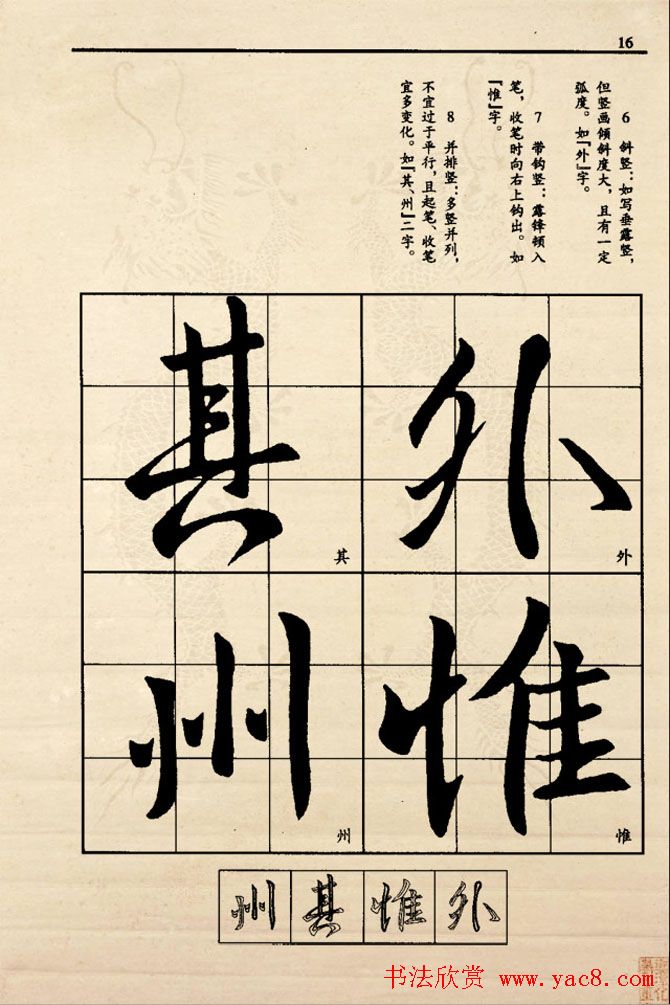 16
6 斜竖：如写垂露竖，
但竖画倾斜度大，且有一定
弧度。如『外』字。
7 带钩竖：露锋顿入
笔，收笔时向右上钩出。如
『惟』字。
8 并排竖：多竖并列，
不宜过于平行，且起笔、收笔
宜多变化。如『其、州』二字。
外
外
惟
惟
其
其
州
州
州其惟外
书法欣赏 www.yac8.com